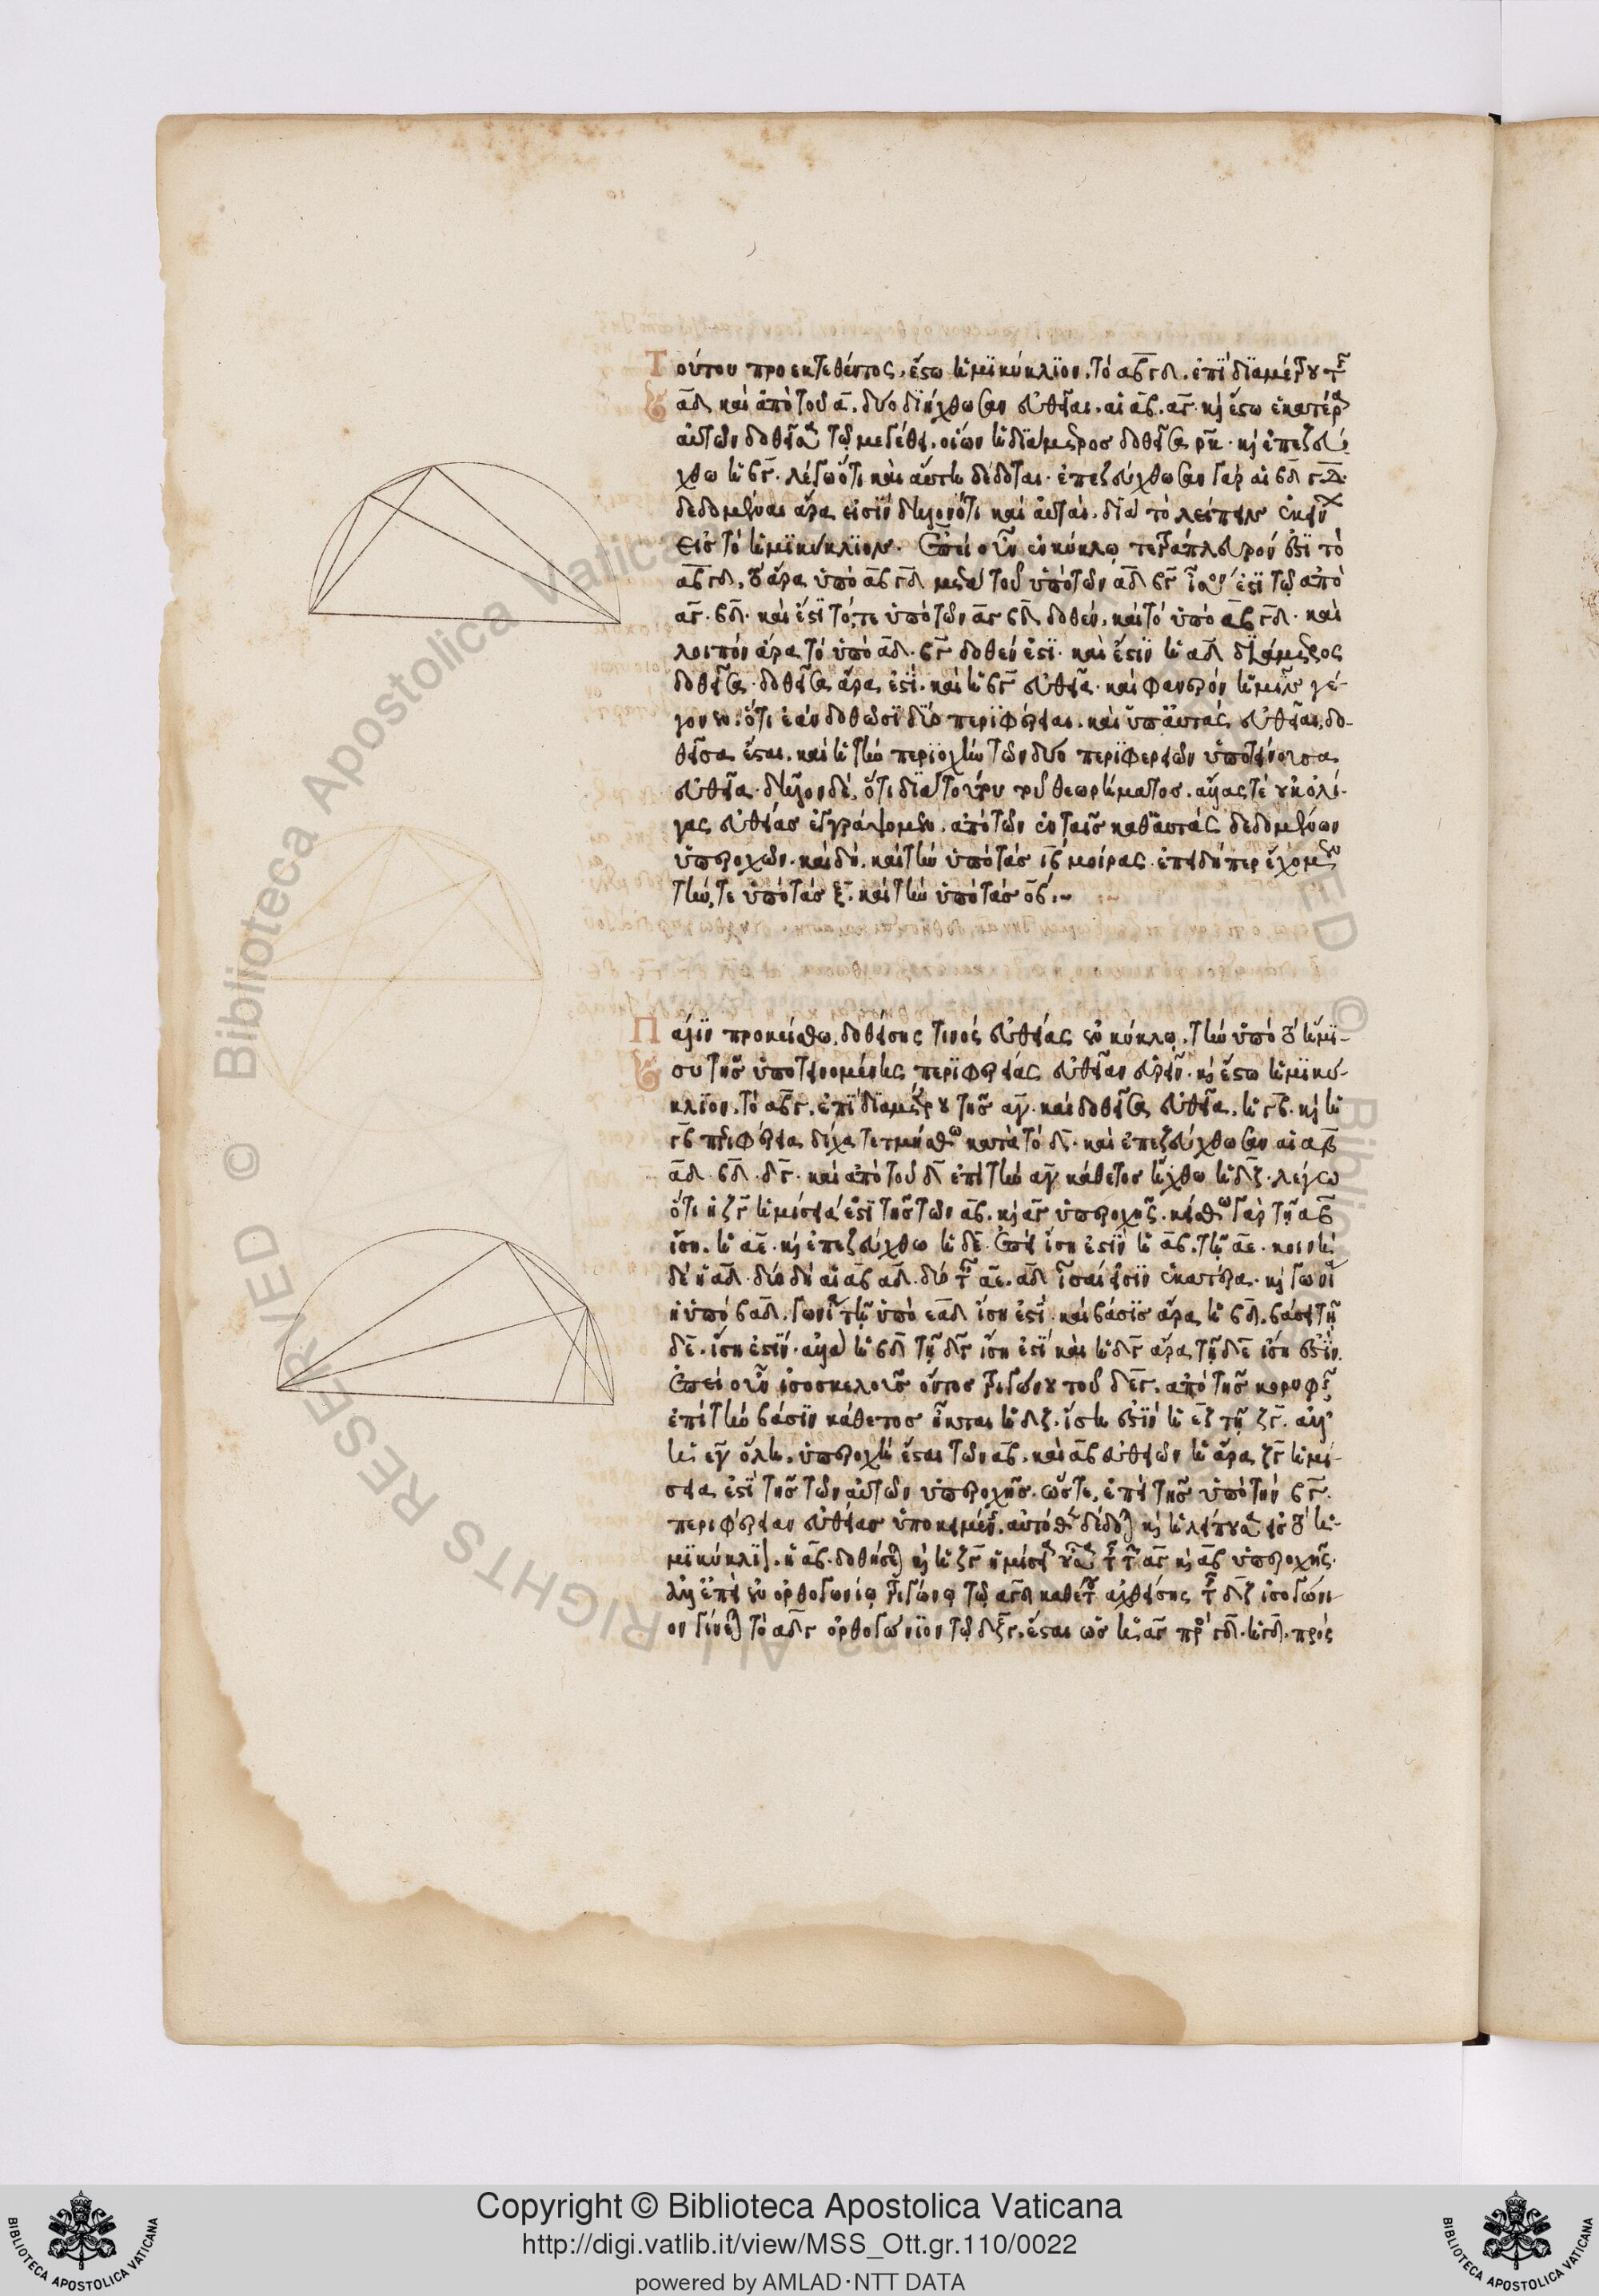 Τούτου προεκτεθέντος, ἔστω ἡμικύκλιον, τὸ αβγδ, ἐπὶ διαμέτρου τῆς
αδ καὶ ἀπὸ τοῦ α, δύο διήχθωσαν εὐθεῖαι, αἱ αβ, αγ, καὶ ἔστω ἑκατέρα
αὐτῶν δοθεῖσα τῷ μεγέθει, οἵων ἡ διάμετρος δοθεῖσα ρκ, καὶ ἐπεζεύ-
χθω ἡ βγ. λέγω ὅτι καὶ αὕτη δέδοται. ἐπεζεύχθωσαν γὰρ αἱ βδ γδ.
δεδομέναι ἄρα εἰσὶν δηλονότι καὶ αὗται, διὰ τὸ λείπειν ἐκείνων
εἰς τὸ ἡμικύκλιον. Ἐπεὶ οὖν ἐν κύκλῳ τετράπλευρόν ἐστι τὸ
αβγδ, τὸ ἄρα ὑπὸ αβ γδ μετὰ τοῦ ὑπὸ τῶν αδ βγ ἴσον ἐστὶ τῷ ἀπὸ
αγ, βδ, καὶ ἔστι τό τε ὑπὸ τῶν αγ βδ δοθέν, καὶ τὸ ὑπὸ αβ γδ, καὶ
λοιπὸν ἄρα τὸ ὑπὸ αδ, βγ δοθέν ἐστι. καὶ ἔστιν ἡ αδ διάμετρος
δοθεῖσα. δοθεῖσα ἄρα ἐστὶ, καὶ ἡ βγ εὐθεῖα. καὶ φανερὸν ἡμῖν γέ-
γονεν, ὅτι ἐὰν δοθῶσι δύο περιφέρειαι, καὶ ὑπ' αὐτὰς εὐθεῖαι, δο-
θεῖσα ἔσται, καὶ ἡ τὴν περιοχὴν τῶν δύο περιφερειῶν ὑποτείνουσα
εὐθεῖα. δῆλον δὲ, ὅτι διὰ τούτου τοῦ θεωρήματος, ἄλλας τε οὐκ ὀλί-
γας εὐθείας ἐγγράψομεν, ἀπὸ τῶν ἐν ταῖς καθ' αὑτὰς δεδομένων
ὑπεροχῶν. καὶ δὴ, καὶ τὴν ὑπὸ τὰς ιβ μοίρας. ἐπειδήπερ ἔχομεν
τήν τε ὑπὸ τὰς ξ, καὶ τὴν ὑπὸ τὰς οβ.
Πάλιν προκείσθω, δοθείσης τινὸς εὐθείας ἐν κύκλῳ, τὴν ὑπὸ τὸ ἥμι-
συ τῆς ὑποτεινομένης περιφερείας εὐθεῖαν εὑρεῖν. καὶ ἔστω ἡμικύ-
κλιον, τὸ αβγ, ἐπὶ διαμέτρου τῆς αγ. καὶ δοθεῖσα εὐθεῖα, ἡ γβ. καὶ ἡ
γβ περιφέρεια δίχα τετμήσθω κατὰ τὸ δ. καὶ ἐπεζεύχθωσαν αἱ αβ
αδ, βδ, δγ, καὶ ἀπὸ τοῦ δ ἐπὶ τὴν αγ κάθετος ἤχθω ἡ δζ. λέγω
ὅτι ἡ ζγ ἡμίσειά ἐστι τῆς τῶν αβ, καὶ αγ ὑπεροχῆς. κείσθω γὰρ τῇ αβ
ἴση, ἡ αε. καὶ ἐπεζεύχθω ἡ δε. Ἐπεὶ ἴση ἐστὶν ἡ αβ, τῇ αε, κοινὴ
δὲ ἡ αδ, δύο δὴ αἱ αβ αδ, δύο ταῖς αε, αδ ἴσαι εἰσὶν ἑκατέρα. καὶ γωνία
ἡ ὑπὸ βαδ, γωνίᾳ τῇ ὑπὸ εαδ ἴση ἐστί. καὶ βάσις ἄρα ἡ βδ, βάσει τῇ
δε, ἴση ἐστίν. ἀλλὰ ἡ βδ τῇ δγ ἴση ἐστὶ καὶ ἡ δγ ἄρα τῇ δε ἴση ἐστίν.
Ἐπεὶ οὖν ἰσοσκελοῦς ὄντος τριγώνου τοῦ δεγ, ἀπὸ τῆς κορυφῆς
ἐπὶ τὴν βάσιν κάθετος ἦκται ἡ δζ, ἴση ἐστὶν ἡ εζ τῇ ζγ. ἀλλ'
ἡ εγ ὅλη, ὑπεροχὴ ἔσται τῶν αβ, καὶ αβ εὐθειῶν ἡ ἄρα ζγ ἡμί-
σεια ἐστὶ τῆς τῶν αὐτῶν ὑπεροχῆς. ὥστε, ἐπεὶ τῆς ὑπὸ τὴν βγ
περιφέρειαν εὐθείας ὑποκειμένης, αὐτόθεν δέδοται καὶ ἡ λείπουσα εἰς τὸ ἡ-
μικύκλιον, ἡ αβ, δοθήσεται καὶ ἡ ζγ ἡμίσεια οὖσα τῆς τῶν αγ καὶ αβ ὑπεροχῆς.
ἀλλ' ἐπεὶ ἐν ὀρθογωνίῳ τριγώνῳ τῷ αγδ καθέτου ἀχθείσης τῆς δζ ἰσογώνι-
ον γίνεται τὸ αδγ ὀρθογώνιον τῷ δζγ, ἔσται ὡς ἡ αγ πρὸς γδ, ἡ γδ, πρὸς
Copyright © Biblioteca Apostolica Vaticana
http://digi.vatlib.it/view/MSS_Ott.gr.110/0022
powered by AMLAD·NTT DATA
BIBLIOTECA APOSTOLICA VATICANA
BIBLIOTECA APOSTOLICA VATICANA